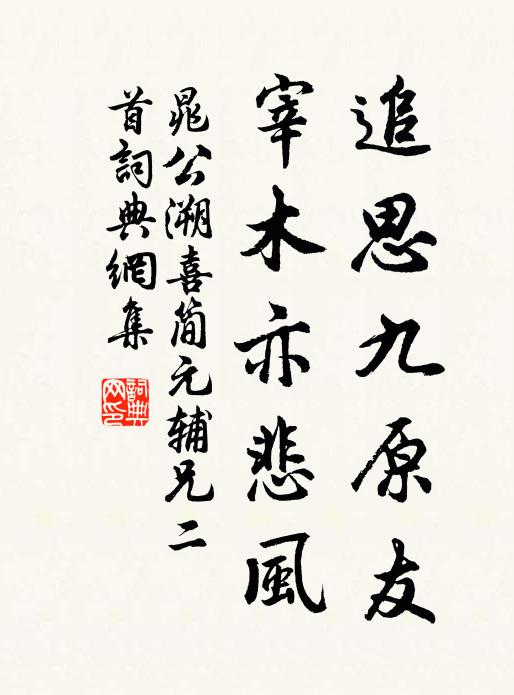 追思九原友
宰木亦悲風
晁公溯喜简元辅兄二
首詞典網集
詞典
网印